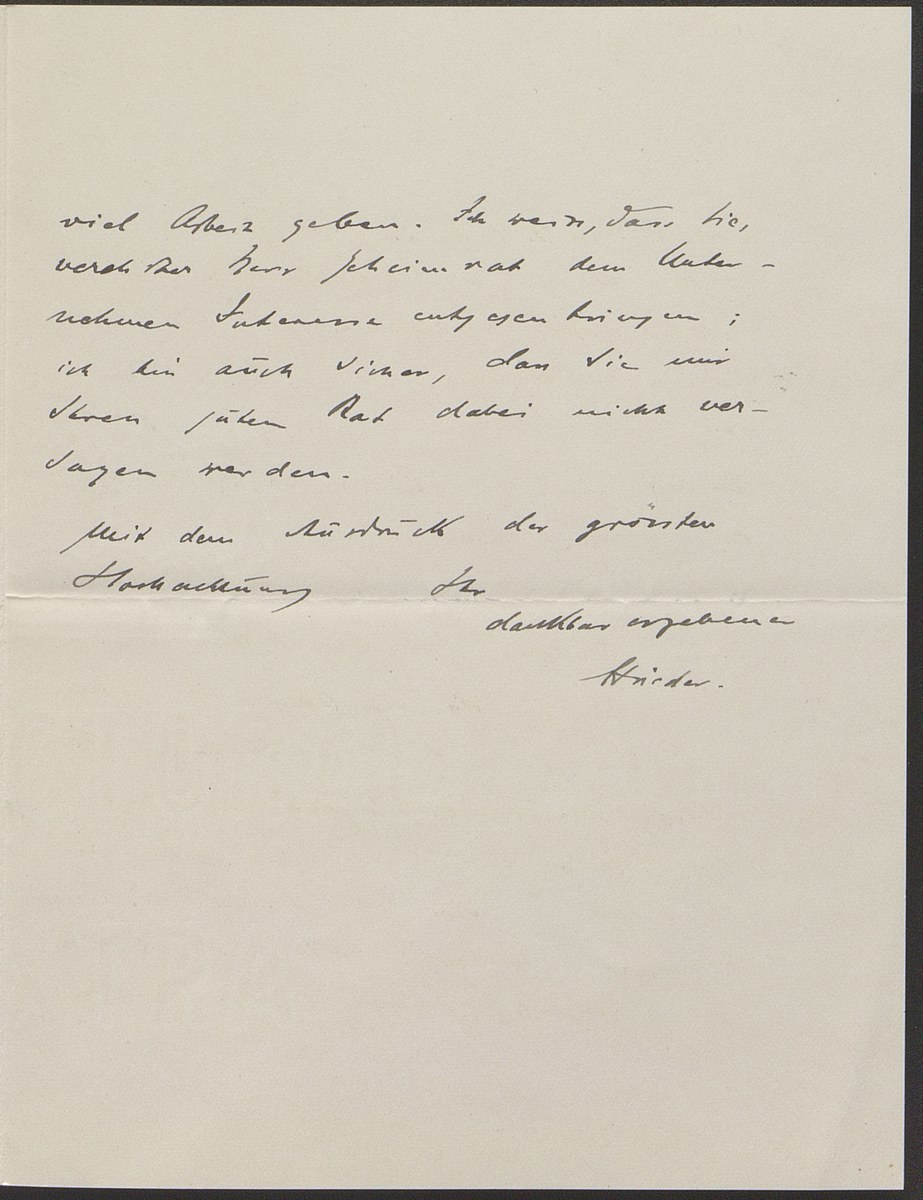 viel Arbeit geben. Ich weiss, dass Sie,
verehrter Herr Geheimrat dem Unter-
nehmen Interesse entgegenbringen;
ich bin auch sicher, dass Sie mir
Ihren guten Rat dabei nicht ver-
sagen werden.
Mit dem Ausdruck der grössten
Hochachtung Ihr
dankbar ergebener